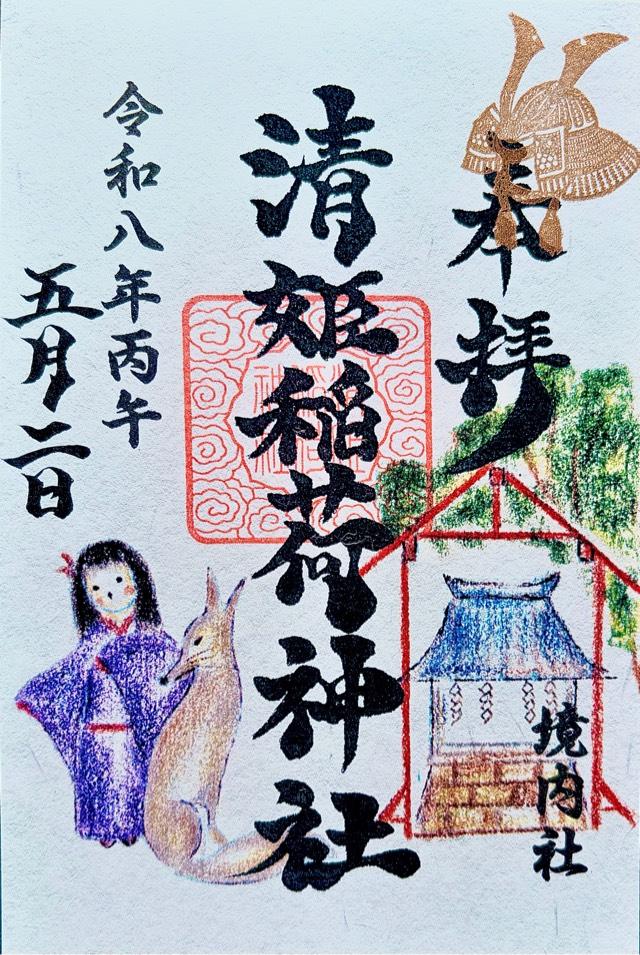 奉拝
境内社
清姫稲荷神社
令和八年丙午
五月二日